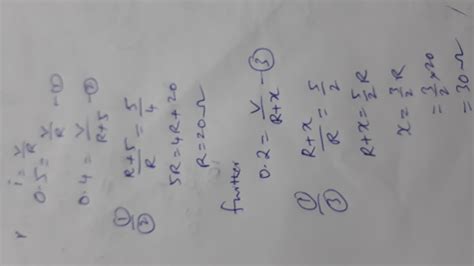 i = V/R
0.5 = V/R - ①
0.4 = V/R+5 - ②
①/② R+5/R = 5/4
5R = 4R + 20
R = 20 Ω
further
0.2 = V/R+x - ③
①/③ R+x/R = 5/2
R+x = 5/2 R
x = 3/2 R
= 3/2 × 20
= 30 Ω